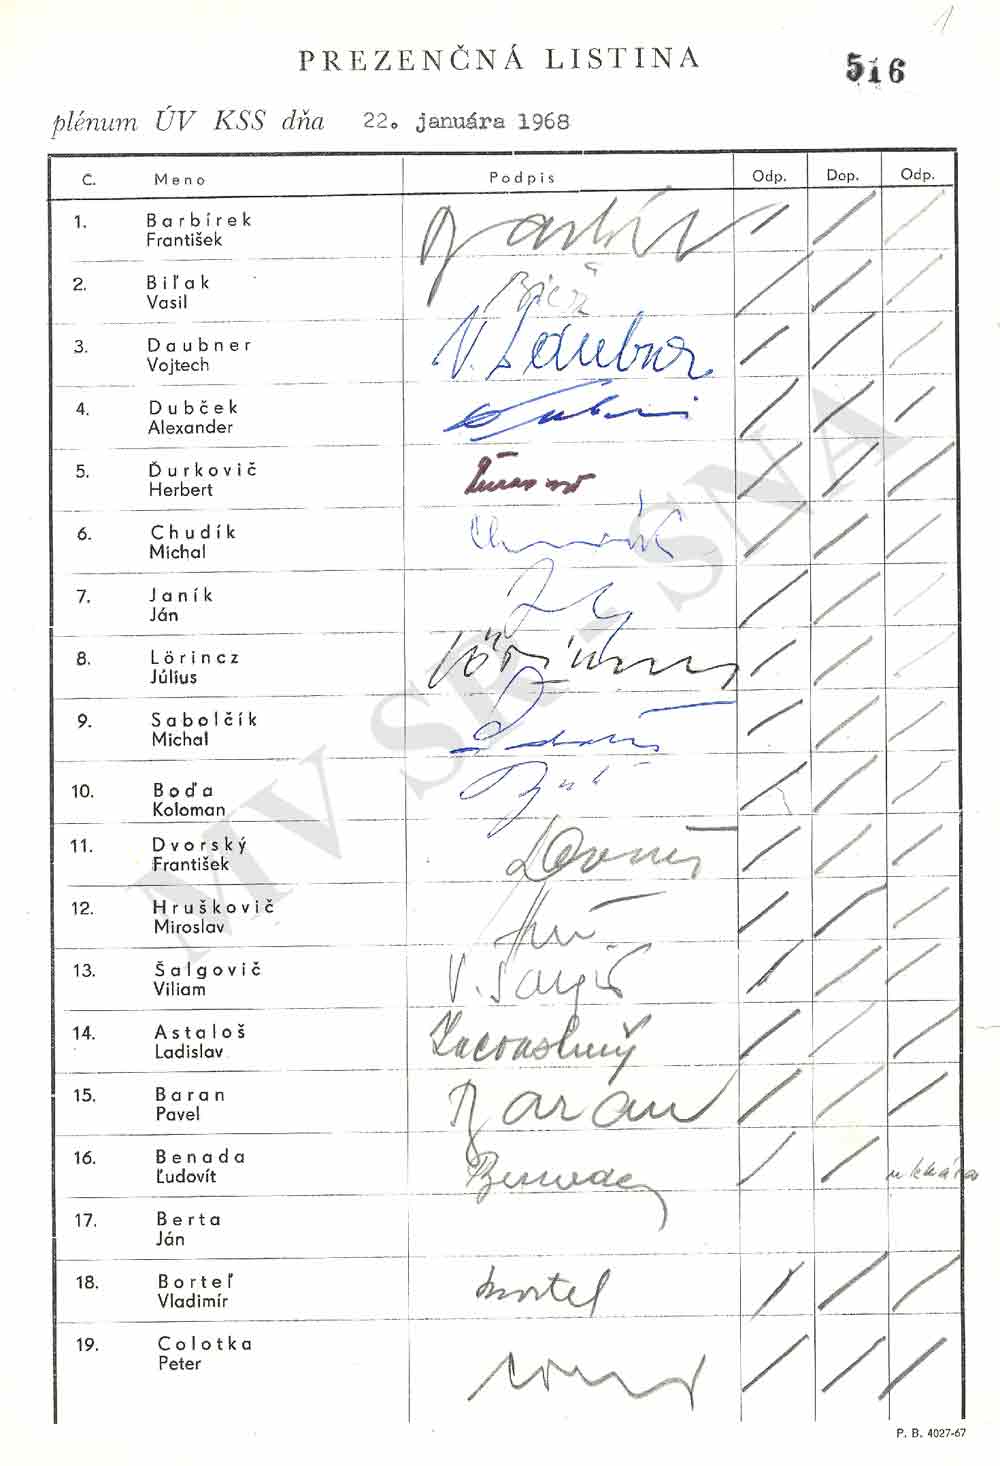 1
PREZENČNÁ LISTINA
516
plénum ÚV KSS dňa 22. januára 1968
Č. Meno Podpis Odp. Dop. Odp.
1. Barbírek
František
2. Biľak
Vasil
3. Daubner
Vojtech
V. Daubner
4. Dubček
Alexander
5. Ďurkovič
Herbert
6. Chudík
Michal
7. Janík
Ján
8. Lörincz
Július
Lörincz
9. Sabolčík
Michal
10. Boďa
Koloman
11. Dvorský
František
12. Hruškovič
Miroslav
13. Šalgovič
Viliam
14. Astaloš
Ladislav
15. Baran
Pavel
Baran
16. Benada
Ľudovít
Benada
17. Berta
Ján
18. Borteľ
Vladimír
Bortel
19. Colotka
Peter
P. B. 4027-67
MV SR - SNA